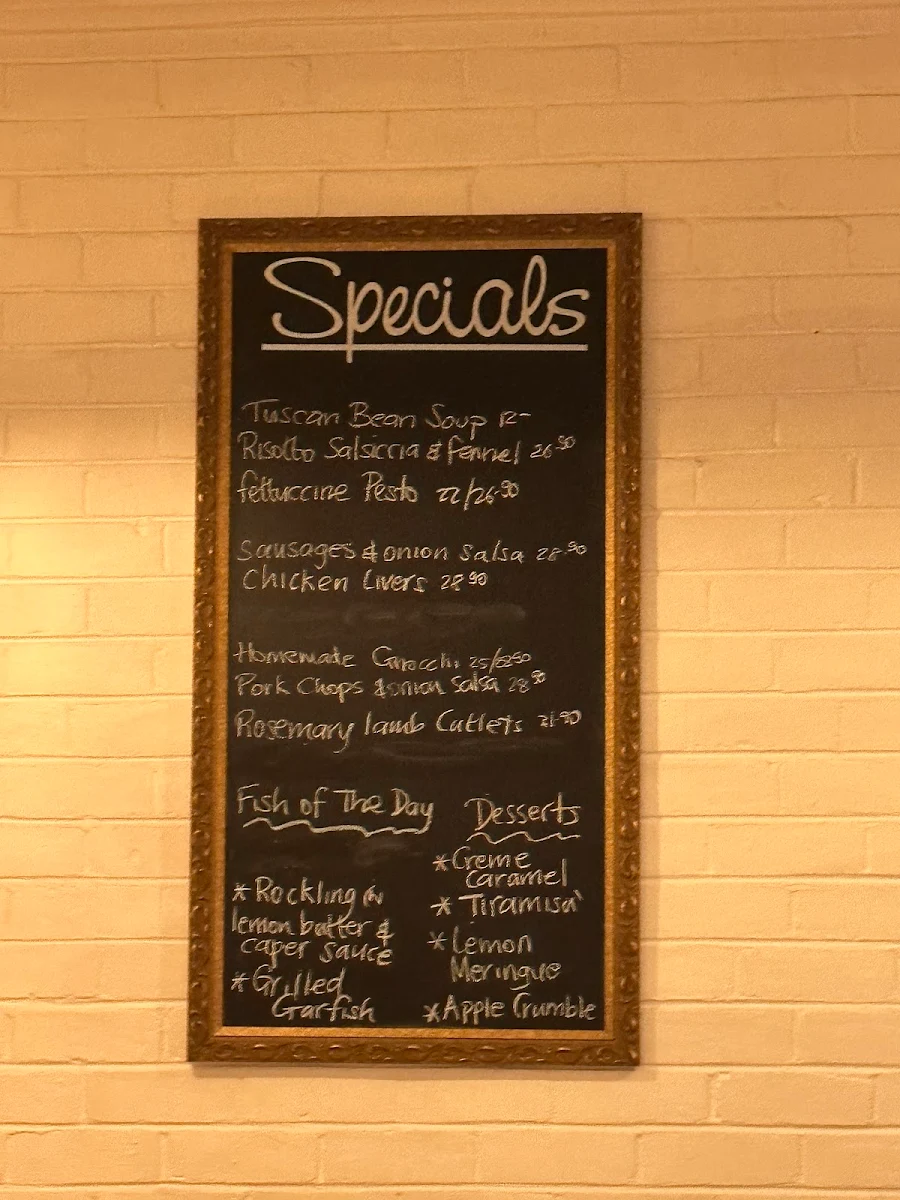 Specials
Tuscan Bean Soup 12-
Risotto Salsiccia & fennel 26.90
fettuccine Pesto 22/26.90
Sausages & onion salsa 28.90
Chicken Livers 28.90
Homemade Gnocchi
Pork Chops & onion Salsa 28.90
Rosemary lamb Cutlets 31.90
Fish of The Day
* Rockling in
lemon butter &
caper sauce
* Grilled
Garfish
Desserts
* Creme
Caramel
* Tiramisu'
* Lemon
Meringue
* Apple Crumble